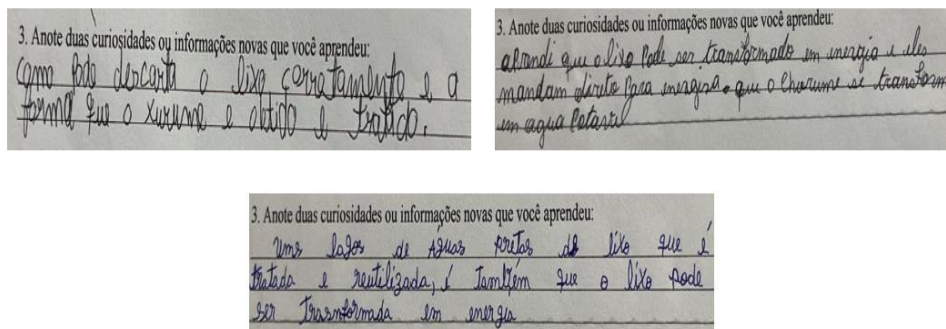 3. Anote duas curiosidades ou informações novas que você aprendeu:
Como pode descarta o lixo corretamente e a
forma que o xurume e obtido e tratido.
3. Anote duas curiosidades ou informações novas que você aprendeu:
aprendi que o lixo pode ser transformado em energia e eles
mandam direto para que o chorume se transform
em agua Potavel
3. Anote duas curiosidades ou informações novas que você aprendeu:
ums lagos de Águas pretas de lixo que é
tratada e reutilizada, e também que o lixo pode
ser trasnformada em energia